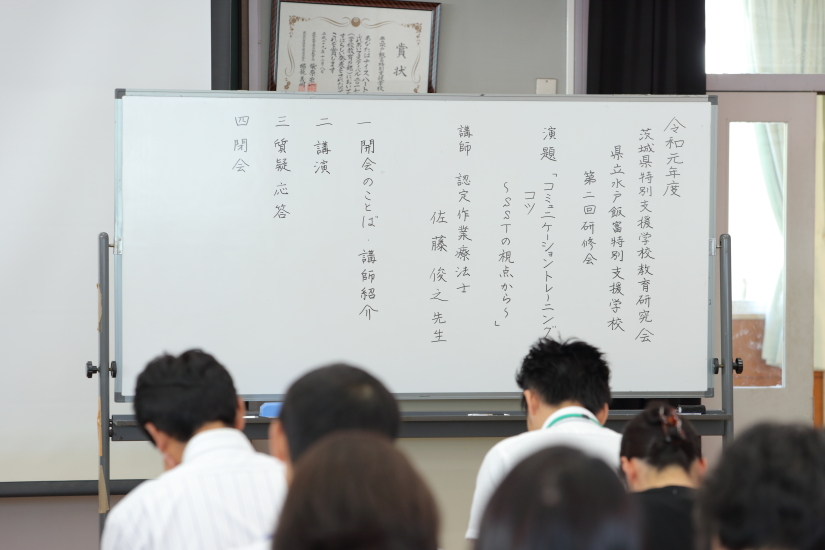 令和元年度
茨城県特別支援学校教育研究会
県立水戸飯富特別支援学校
第二回研修会
演題「コミュニケーショントレーニング
コツ
～SSTの視点から～」
講師 認定作業療法士
佐藤俊之先生
一 開会のことば・講師紹介
二 講演
三 質疑応答
四 閉会
賞状